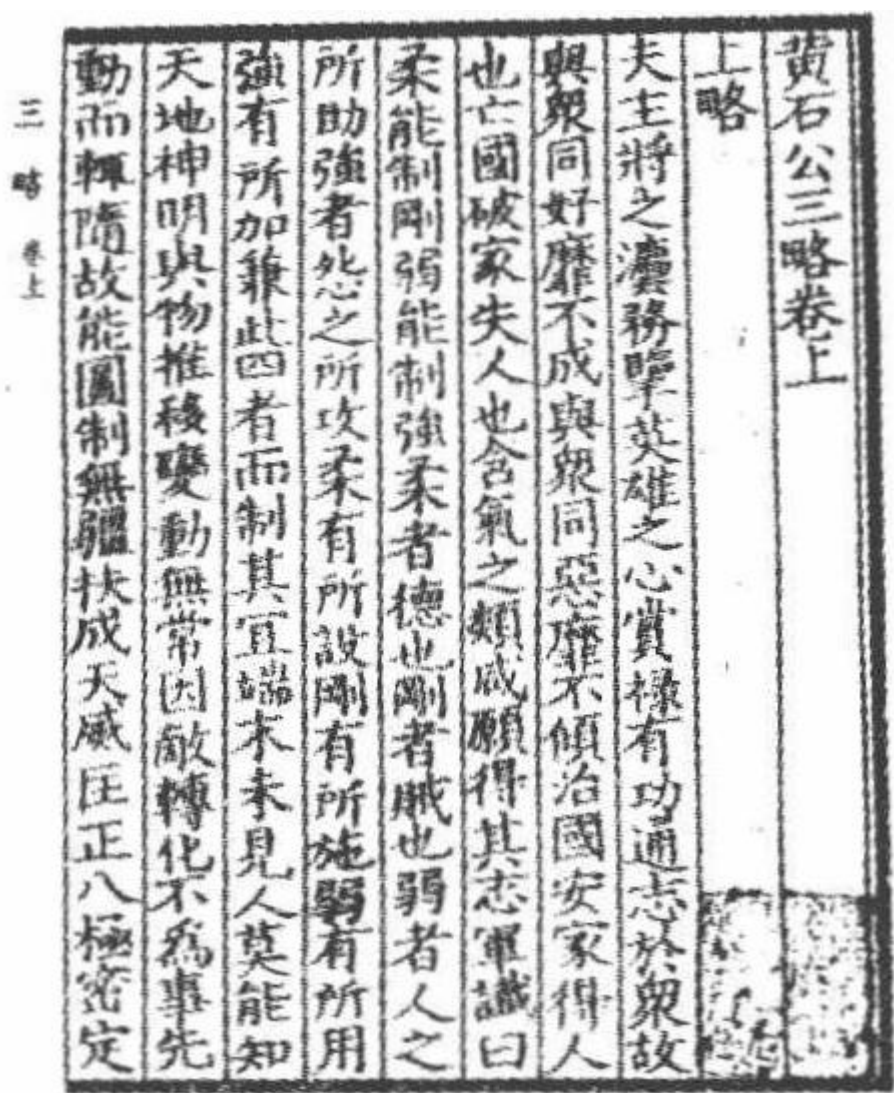 黄石公三略卷上
上略
夫主將之灋務擥英雄之心賞祿有功通志於衆故
與衆同好靡不成與衆同惡靡不傾治國安家得人
也亡國破家失人也含氣之類咸願得其志軍讖曰
柔能制剛弱能制強柔者德也剛者賊也弱者人之
所助強者怨之所攻柔有所設剛有所施弱有所用
強有所加兼此四者而制其宜端末未見人莫能知
天地神明與物推移變動無常因敵轉化不爲事先
動而輒隨故能圖制無疆扶成天威匡正八極密定
三略 卷上